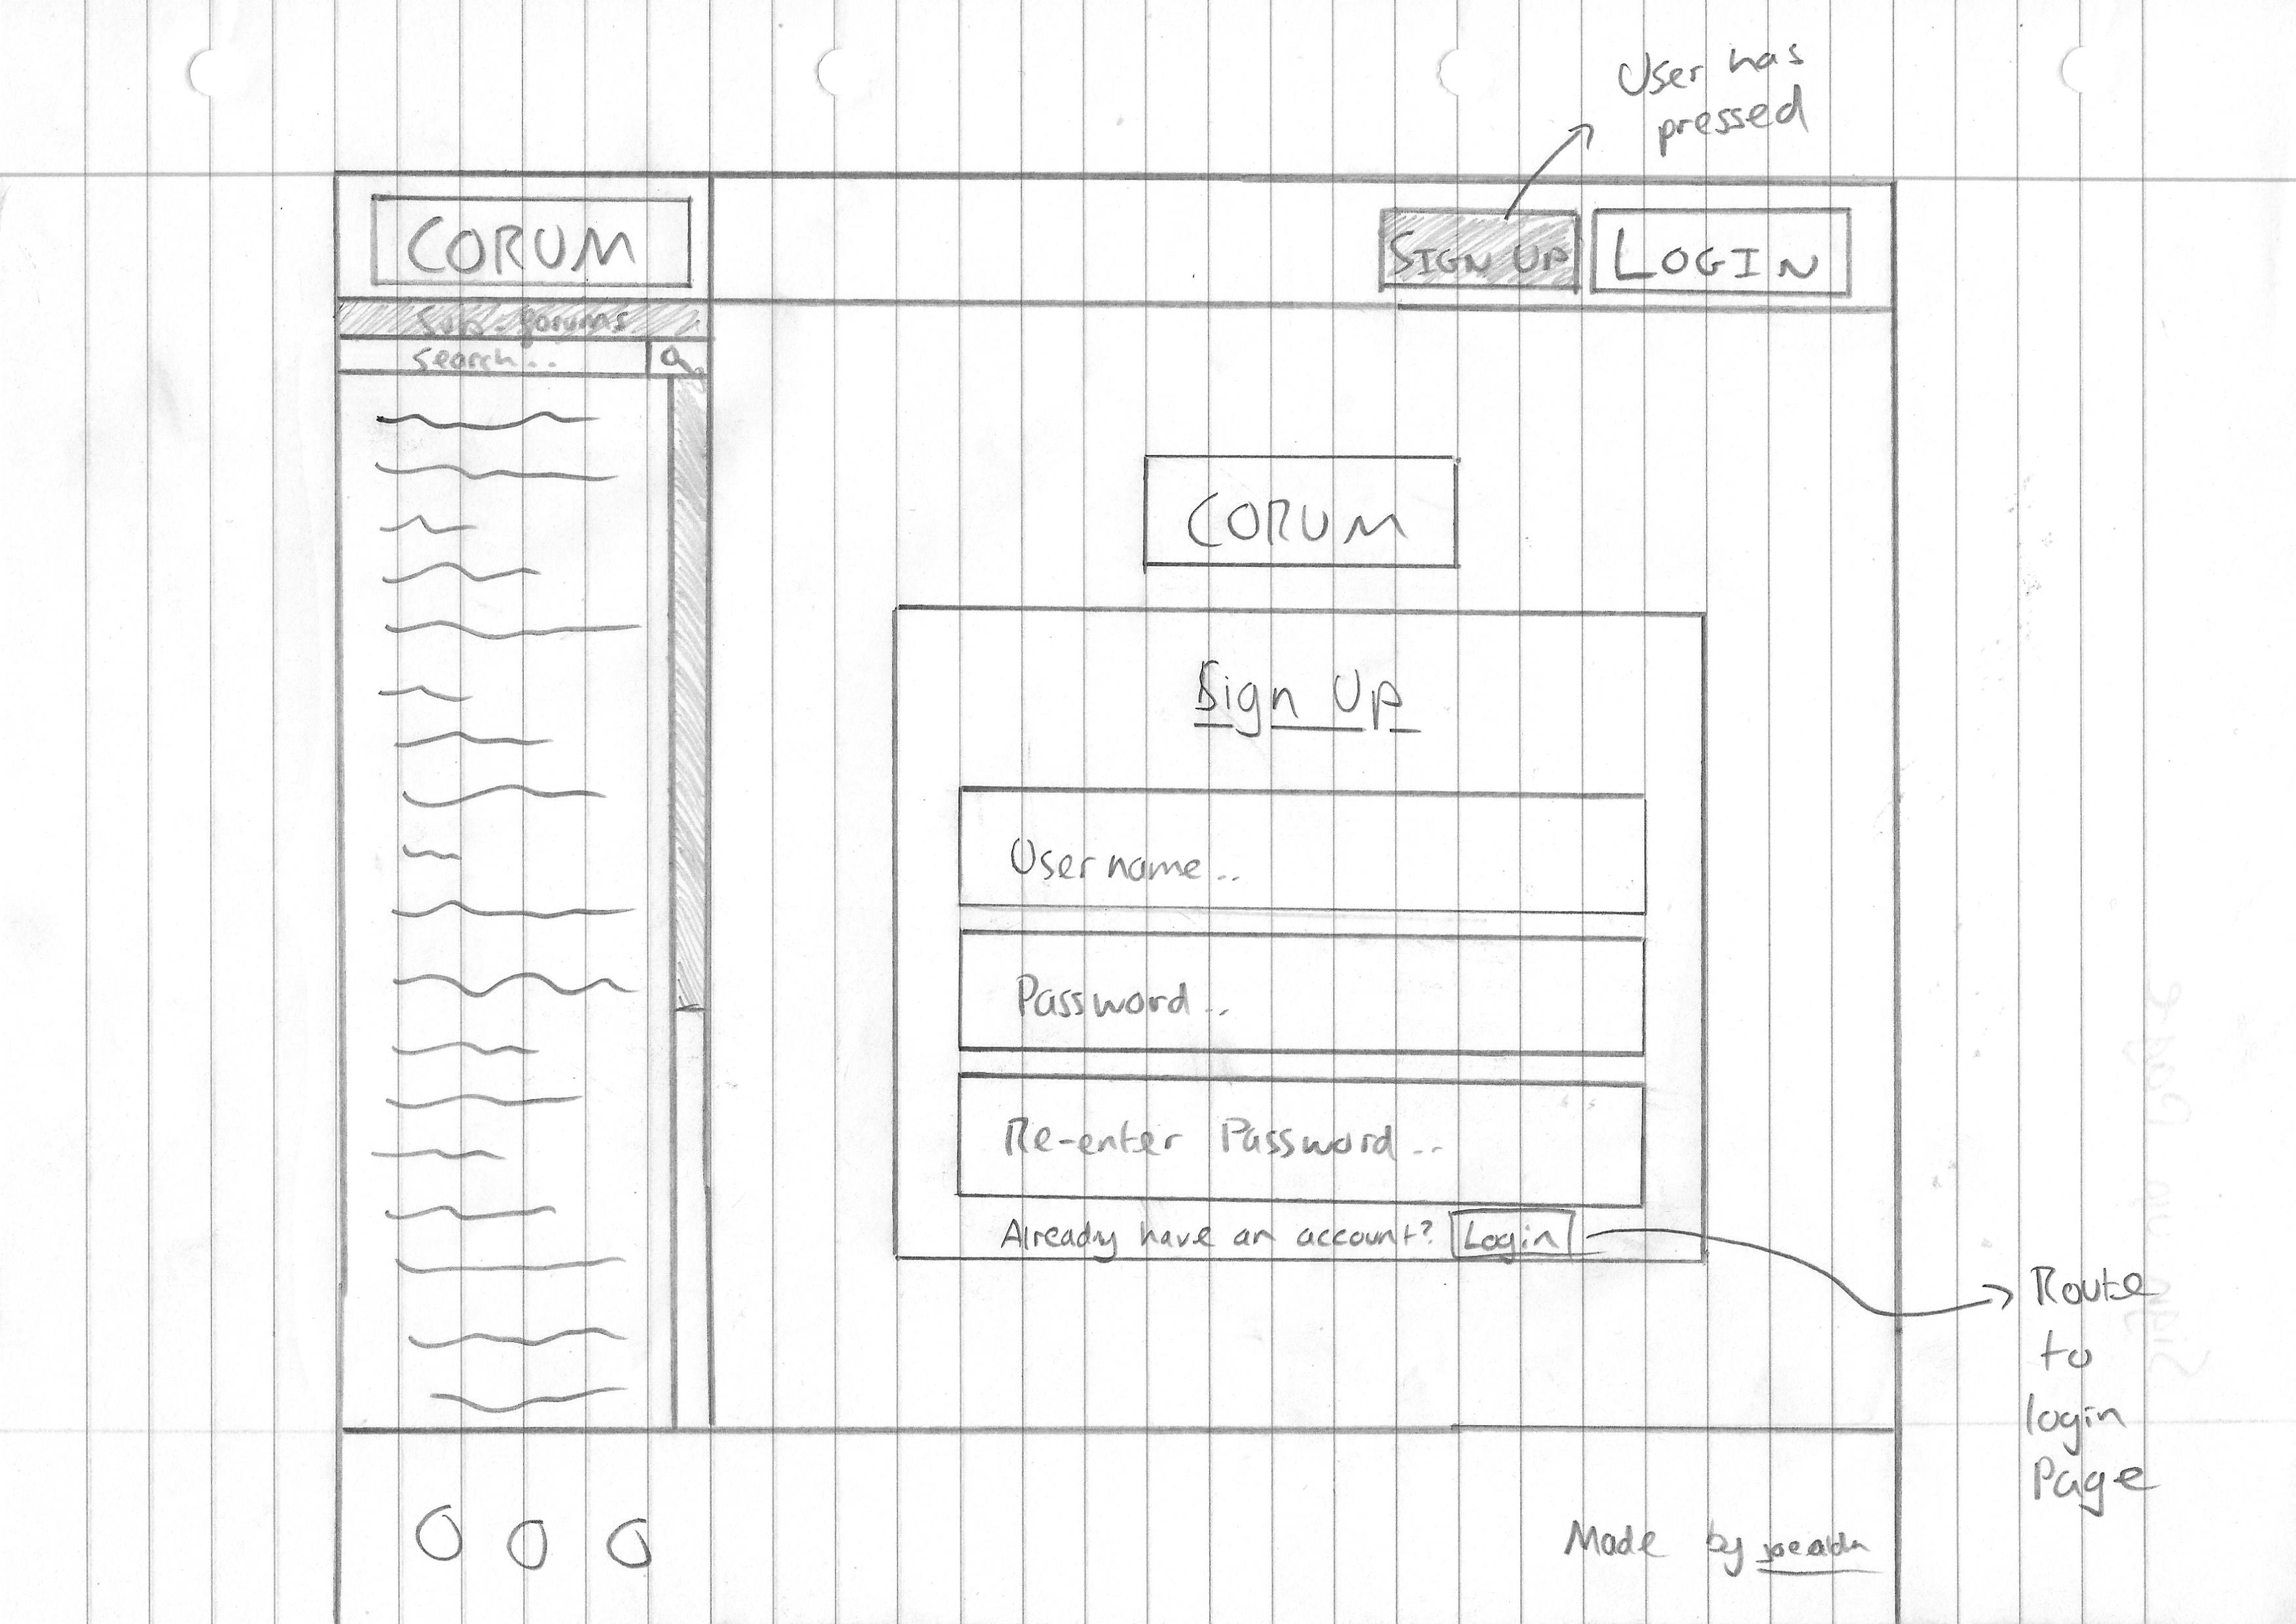 User has
pressed
CORUM
SIGN UP
LOGIN
Sub-forums
Search..
CORUM
Sign Up
Username..
Password..
Re-enter Password..
Already have an account? Login
Route
to
login
Page
Made by
Sign up Page